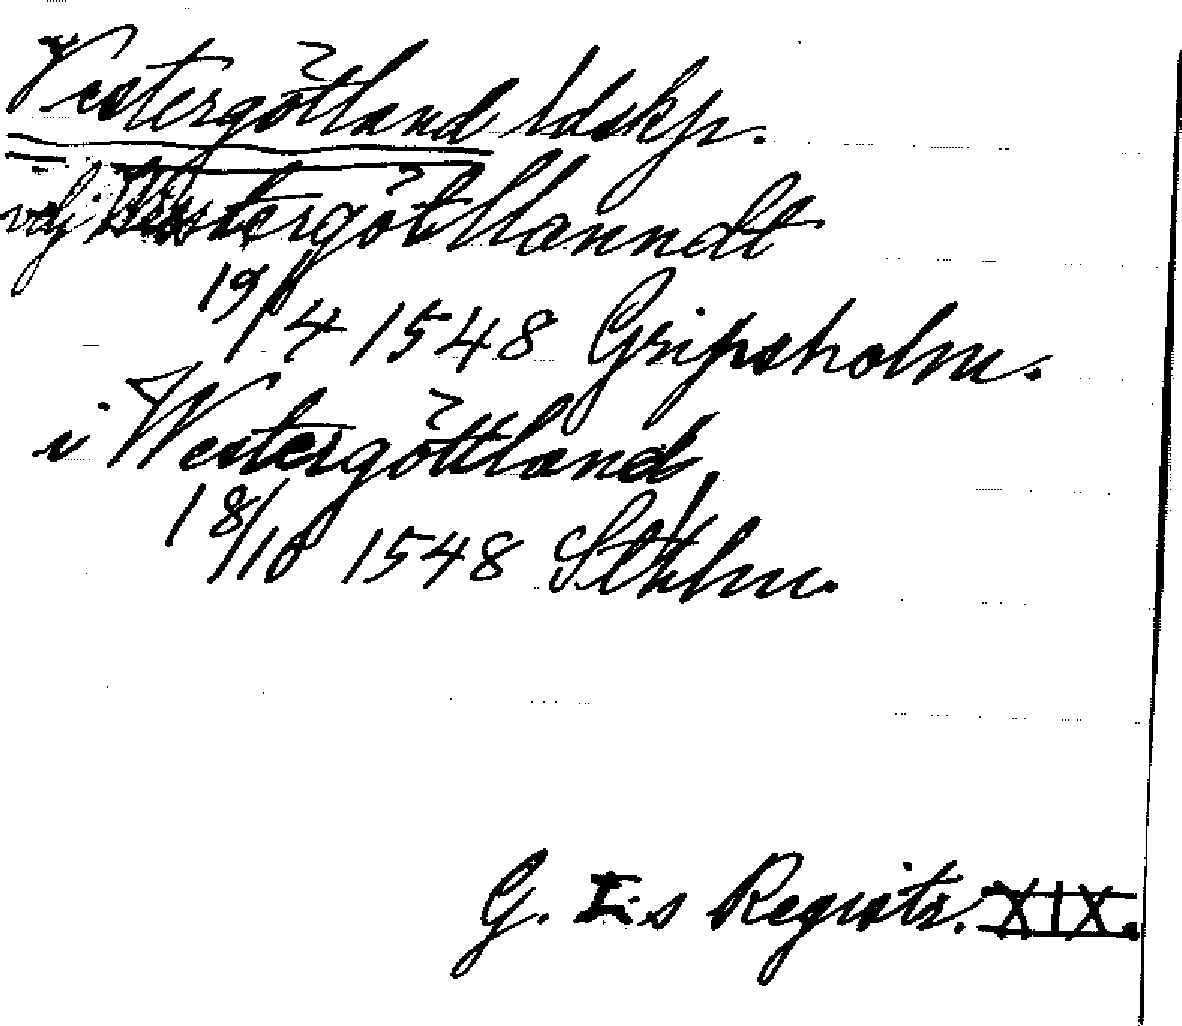 Vestergötland ldskp.
vdj Westergöthlanndt
19/4 1548 Gripsholm.
i Westergöttland,
18/10 1548 Sthlm.
G. I:s Registr. XIX.